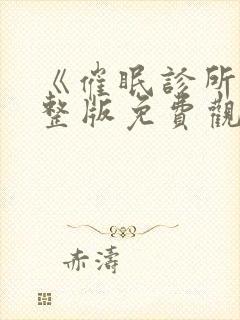 《催眠診所
整版免費觀
赤濤